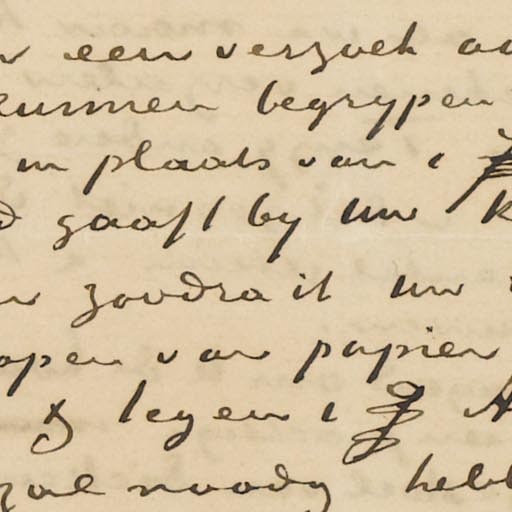 een verzoek
kunnen begrypen
in plaats van 1
gaaft by uw
zoodra it uw
open van papier
tegen 1
zal noodig hebb